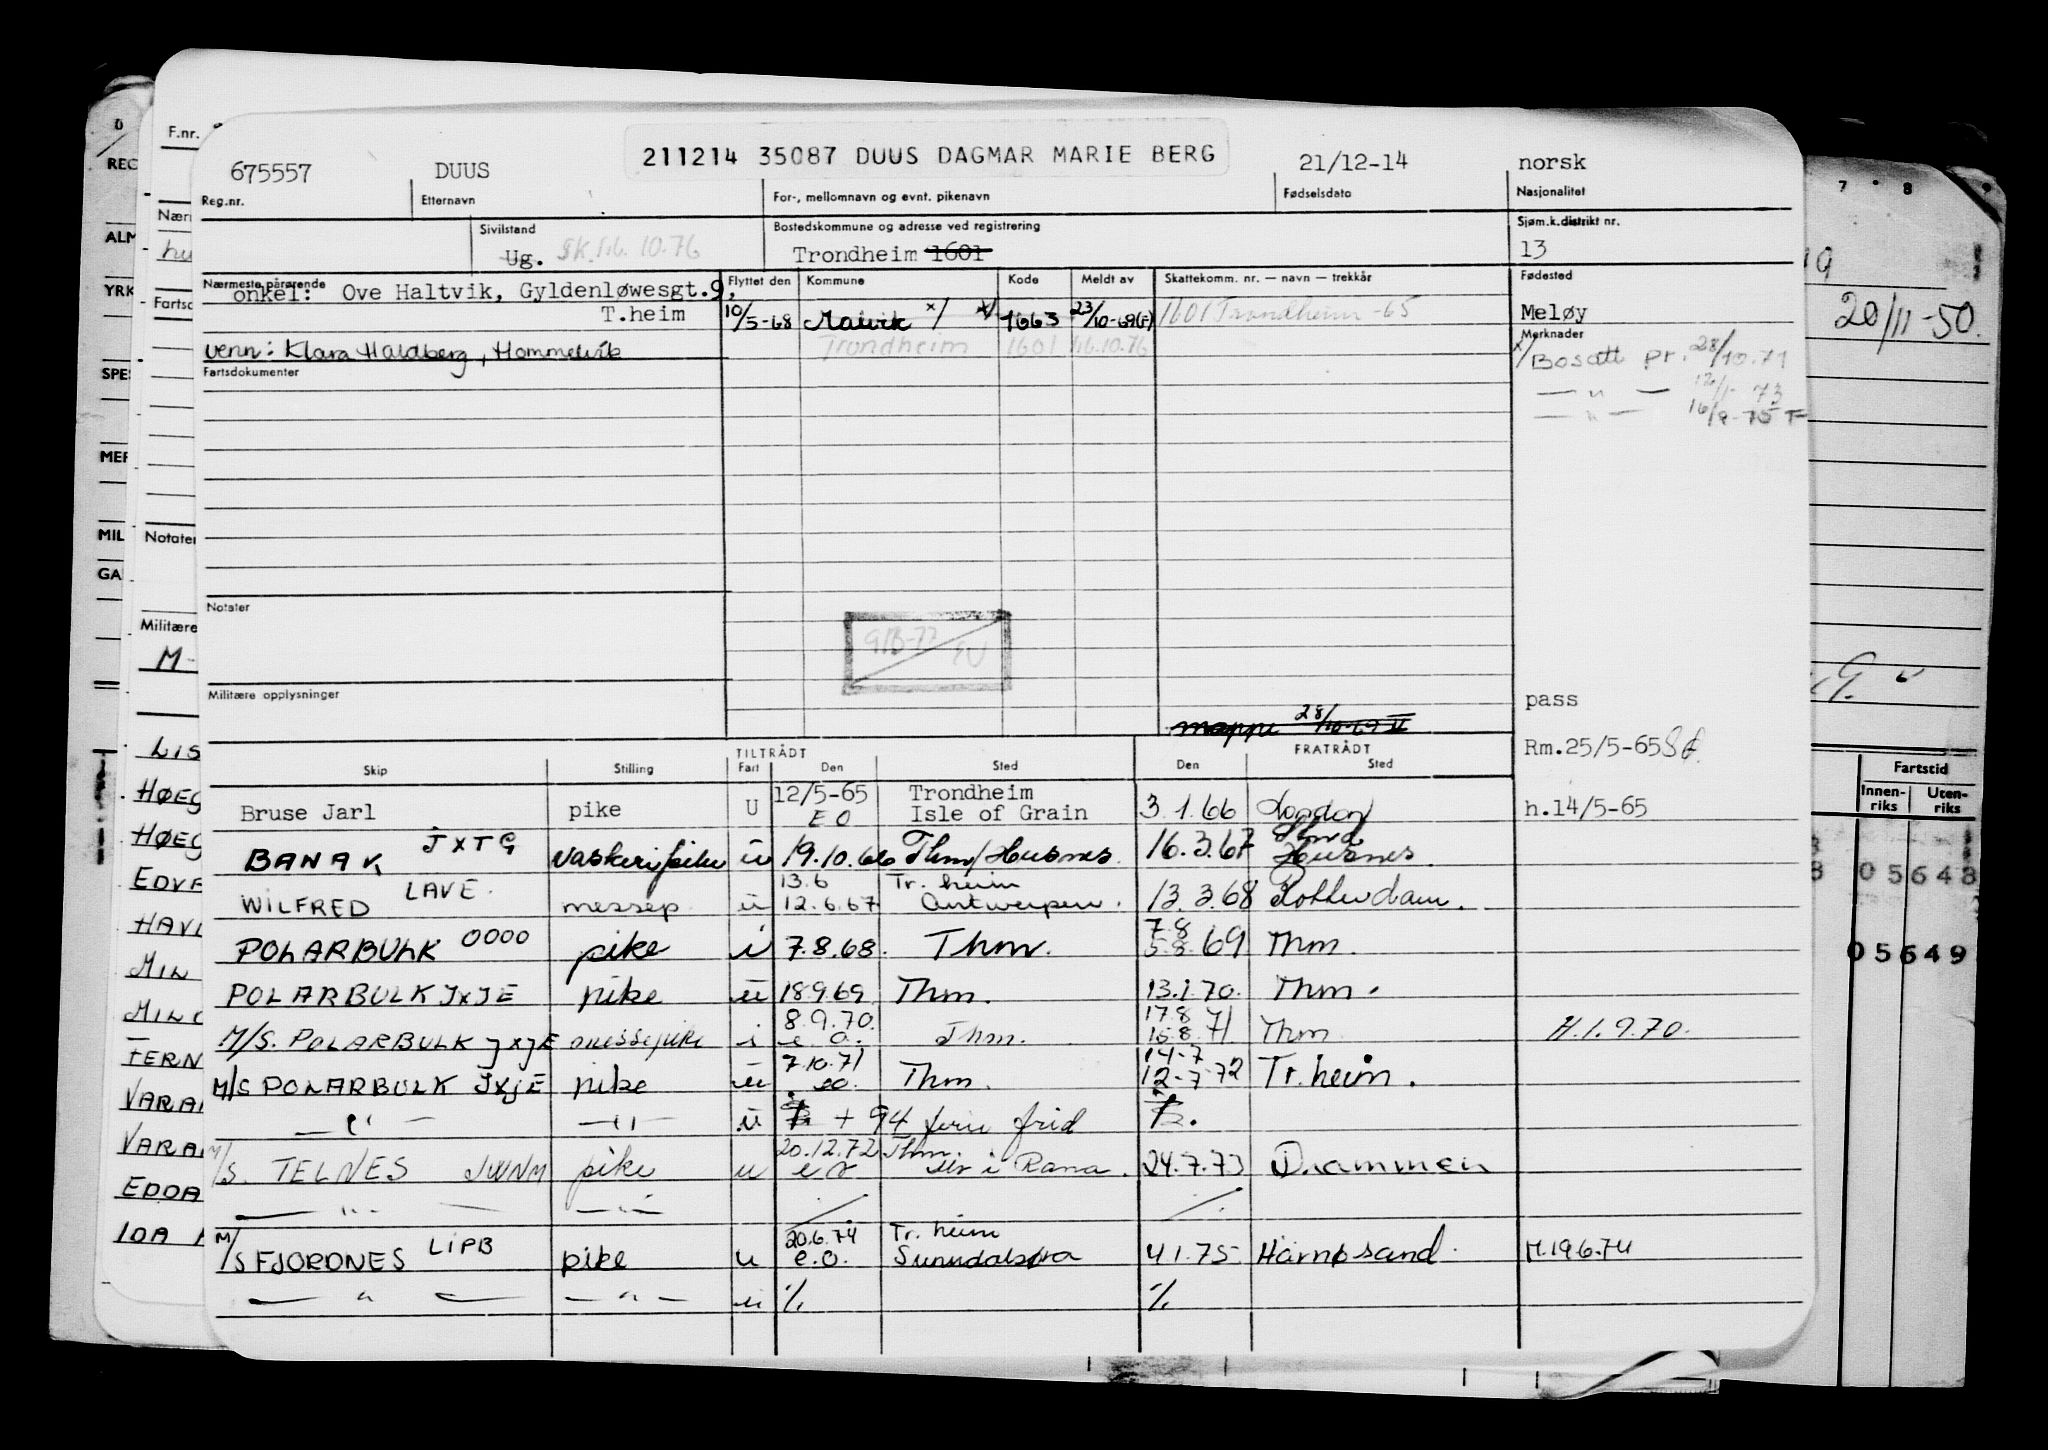 675557 DUUS 211214 35087 DUUS DAGMAR MARIE BERG 21/12-14 norsk
Reg.nr. Etternavn For-, mellomnavn og evnt. pikenavn Fødselsdato Nasjonalitet
Sivilstand Bostedskommune og adresse ved registrering Sjøm.k.distrikt nr.
Ug. 10.76 Trondheim 1601 13
Nærmeste pårørende Flyttet den Kommune Kode Meldt av Skattekomm. nr. — navn — trekkår Fødested
onkel: Ove Haltvik, Gyldenløwesgt.9,
T.heim 10/5-68 Malvik x/ 1663 23/10-69(F) 1601 Trondheim -65 Meløy
Merknader
venn: Klara Haldberg, Hommelvik Trondheim 1601 16.10.76 x/Bosatt pr. 28/10.71
Fartsdokumenter
— " — 12/1- 73
— " — 16/9-75 F
Notater
Militære opplysninger
pass
mappe 28/10-69
Rm.25/5-65
TILTRÅDT FRATRÅDT
Skip Stilling Fart Den Sted Den Sted
Bruse Jarl pike U 12/5-65 EO Trondheim Isle of Grain 3.1.66 London h.14/5-65
BANAK JXTG vaskeripike u 19.10.66 Thm/Husnes 16.3.67 Husnes.
WILFRED LAVE messep. u 13.6 12.6.67 Tr.heim Antwerpen. 13.3.68 Rotterdam.
POLARBULK OOOO pike i 7.8.68. Thm. 7.8 5.8.69 Thm.
POLARBULK JXJE pike u 18.9.69 Thm. 13.1.70. Thm.
M/S. POLARBULK JXJE messepike i 8.9.70. e.o. Thm. 17.8 15.8.71 Thm H.1.9.70.
M/S POLARBULK JXJE pike u 7.10.71 eo. Thm. 14-7 12-7-72 Tr.heim.
— " — — " — u + 94 ferie frid
M/S. TELNES JWNM pike u 20.12.72 e o Thm. Mo i Rana. 24.7.73 Drammen
— " — — " —
M/S FJORDNES LIPB pike u 20.6.74 e.o. Tr.heim Sunndalsøra 4.1.75 Härnøsand. M.19.6.74
— " — — " — u % %
F.nr.
REG
ALM
YRK
SPES
MER
MIL
GA
Nærm
Fartsd
Notater
Militære
M-
LIS
HØEG
HØEG
EDVA
HAVL
MIN
MIN
FERN
VARAN
VARAN
EDOA
IDA
7 8
20/11-50.
Fartstid
Innen-riks Uten-riks
05648
05649